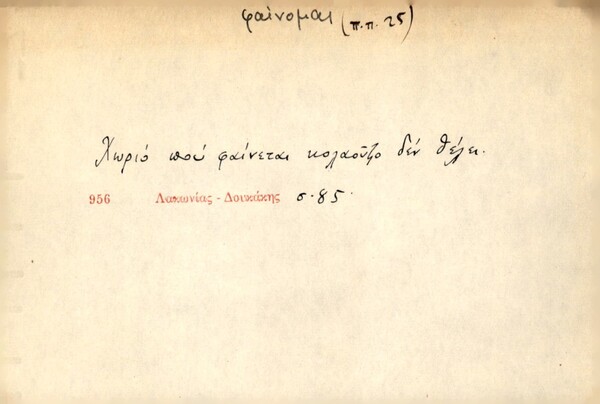 φαίνομαι (π.π. 25)
Χωριό πού φαίνεται κολαοῦζο δέν θέλει.
956 Λακωνίας - Δουκάκης σ. 85